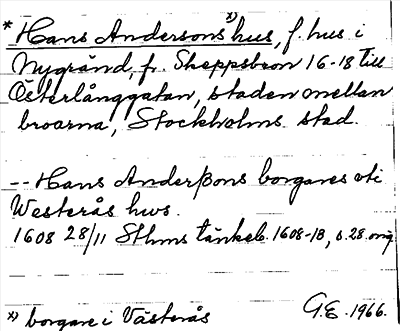 * Hans Anderssons x) hus, f. hus i
Nygränd, fr. Skeppsbron 16-18 till
Österlånggatan, staden mellan
broarna, Stockholms stad.
-- Hans Anderßons borgares vti
Westerås hws.
1608 28/11 Sthms tänkeb. 1608-18, s. 28. orig.
x) borgare i Västerås
G.E. 1966.